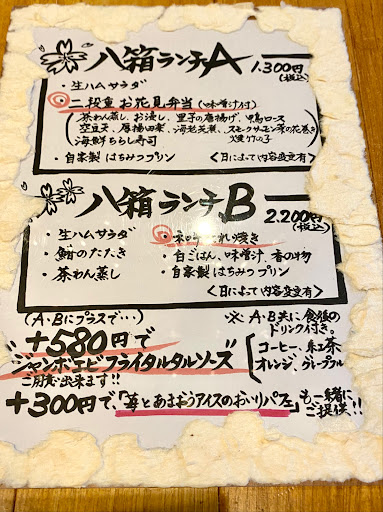 八箱ランチA 1.300円
(税込)
・生ハムサラダ
・二段重お花見弁当(味噌汁付)
茶わん蒸し、お浸し、里子の唐揚げ、甲鳥ロース
空豆天、厚揚田楽、海老芝煮、スモークサーモン菜の花巻き
海鮮ちらし寿司 焼竹の子
・自家製はちみつプリン 〈日によって内容変更有〉
八箱ランチB 2.200円
(税込)
・生ハムサラダ
・鮒のたたき ・白ごはん、味噌汁、香の物
・茶わん蒸し ・自家製はちみつプリン
〈日によって内容変更有〉
(A・Bにプラスで…) ※A・B共に食後の
ドリンク付き。
"+580円で
ジャンボエビフライタルタルソース" コーヒー、紅茶
ご用意出来ます!! オレンジ、グレープフル
+300円で、「苺とあまおうアイスのおいりパフェ」も、一緒に
ご提供!!